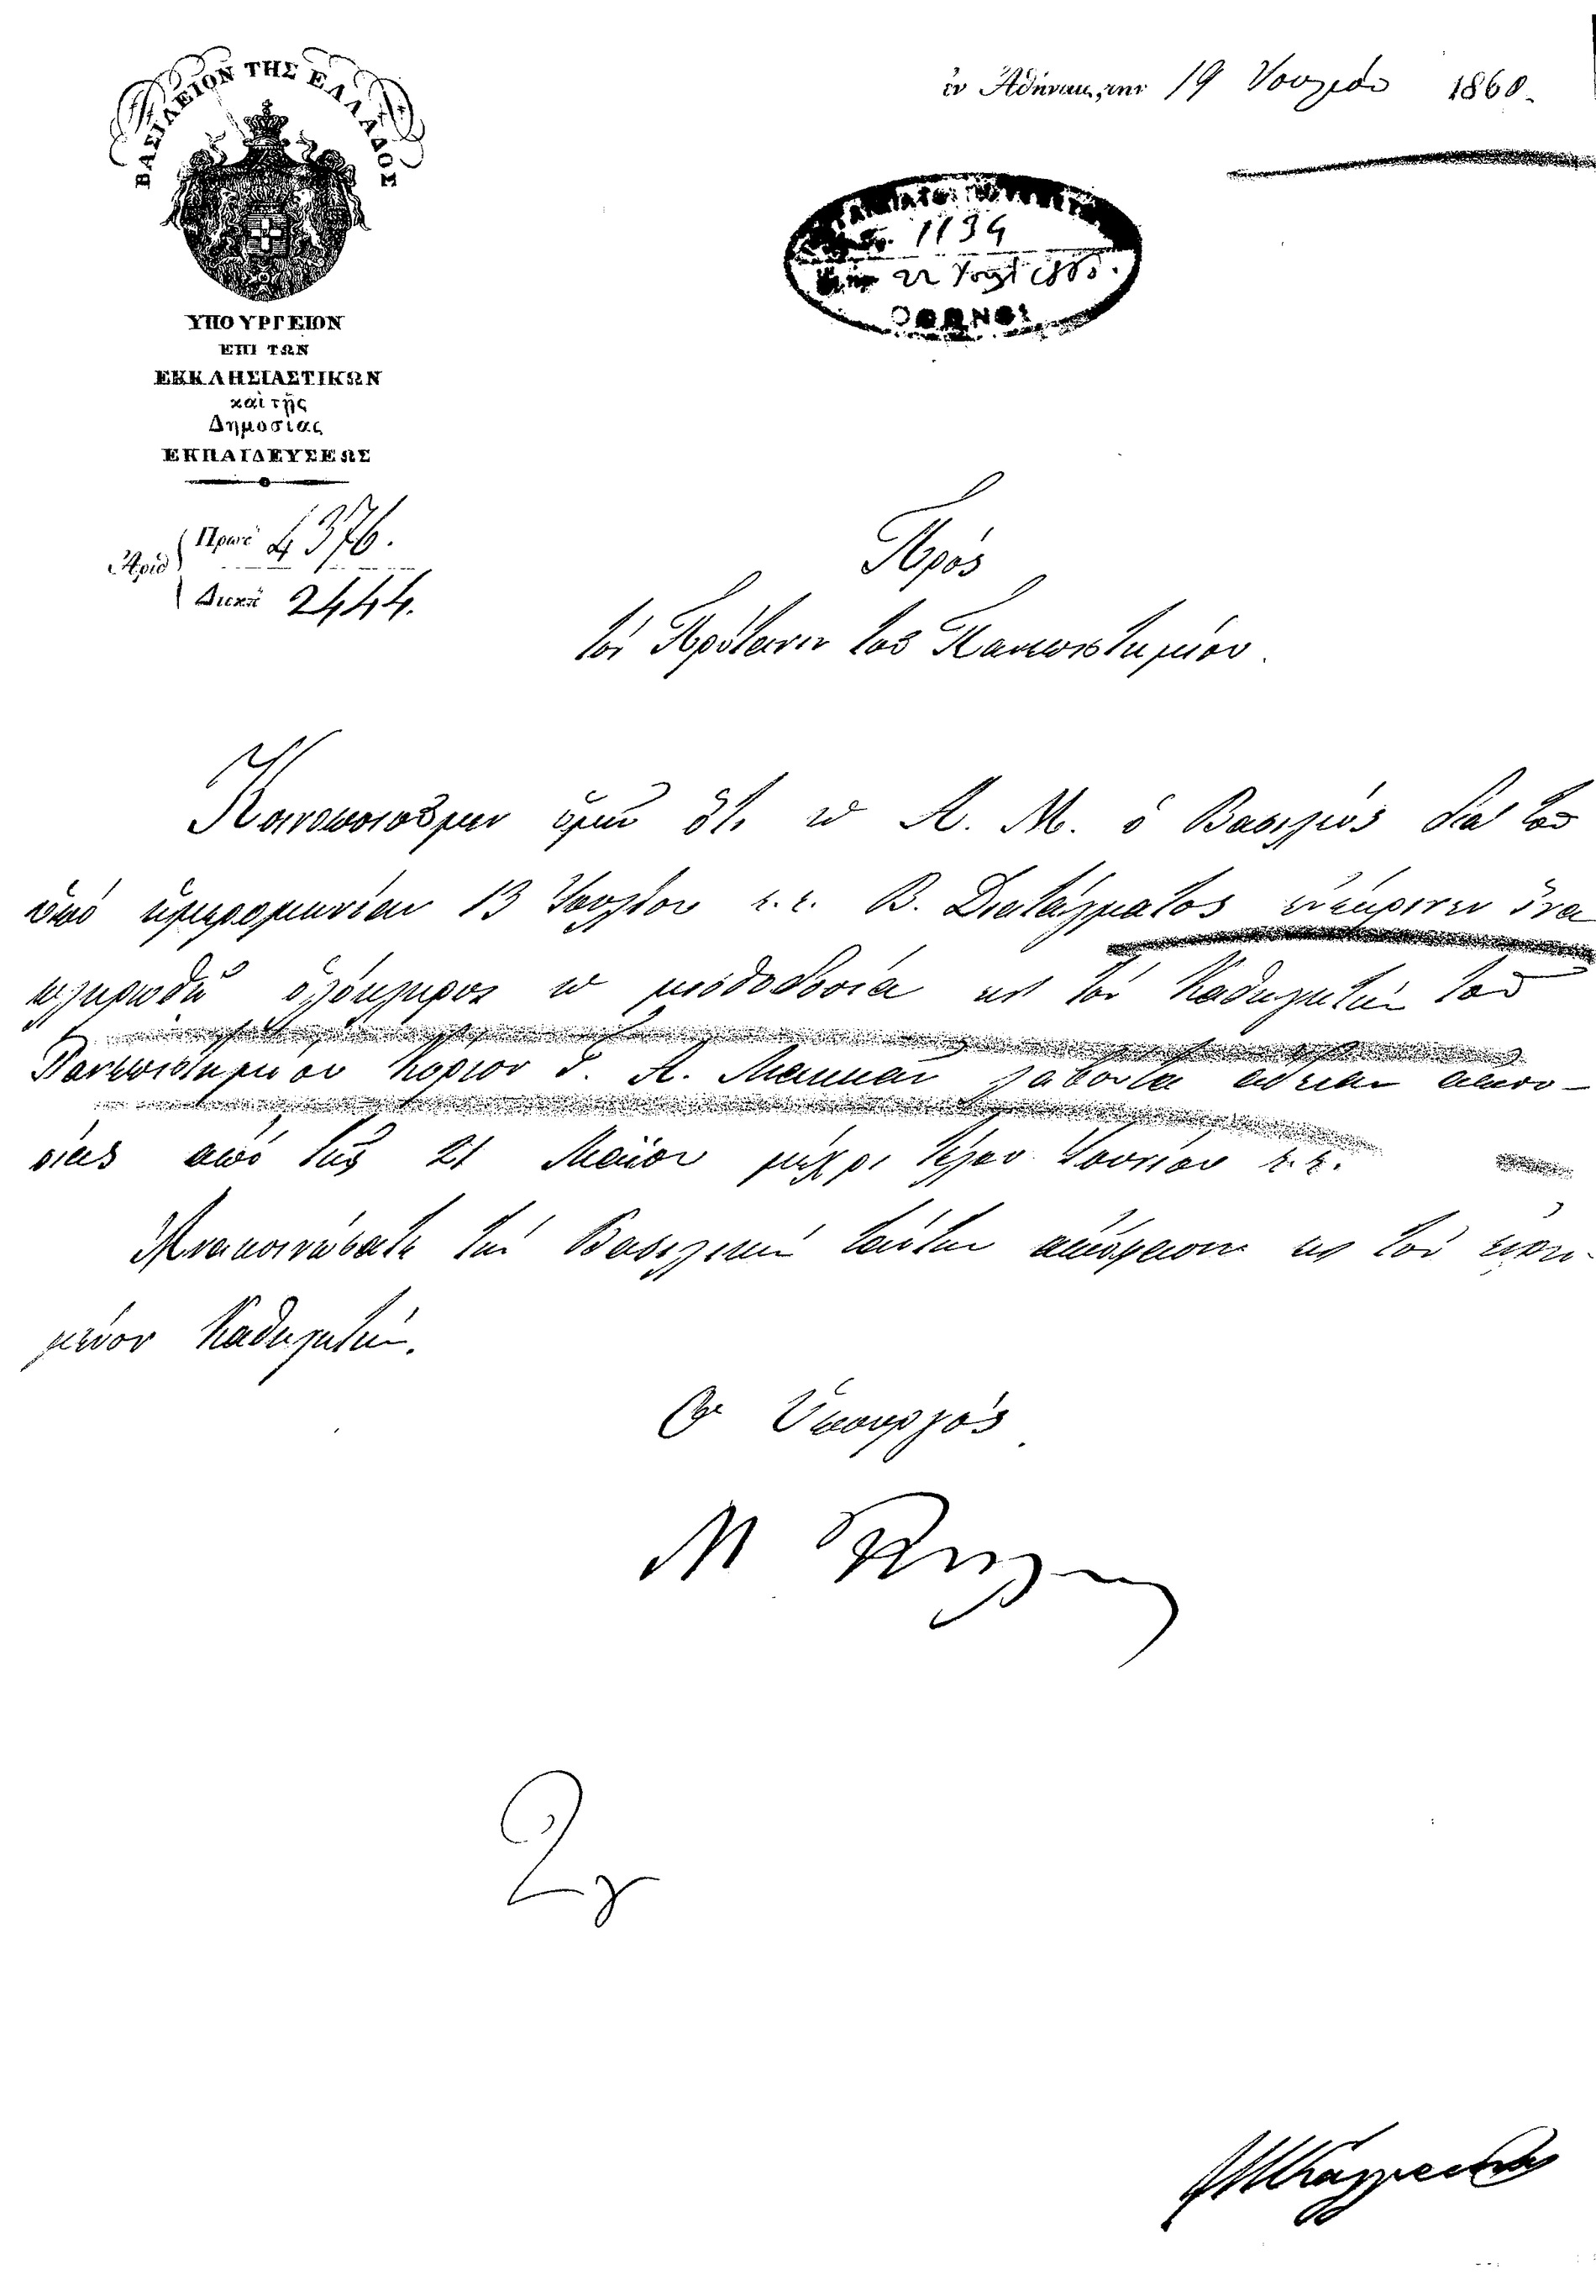 ΒΑΣΙΛΕΙΟΝ ΤΗΣ ΕΛΛΑΔΟΣ
ΥΠΟΥΡΓΕΙΟΝ
ΕΠΙ ΤΩΝ
ΕΚΚΛΗΣΙΑΣΤΙΚΩΝ
καὶ τῆς
Δημοσίας
ΕΚΠΑΙΔΕΥΣΕΩΣ
Ἀριθ
Πρωτ 4376.
Διεκπ 2444.
ἐν Ἀθήναις, την 19 Ἰουλίου 1860.
1134
22 Ἰουλ 1860.
ΟΘΩΝΟΣ
Πρός
τὸν Πρύτανιν τοῦ Πανεπιστημίου.
Κοινοποιοῦμεν ὑμῖν ὅτι ἡ Α. Μ. ὁ Βασιλεὺς διὰ τοῦ
ὑπὸ ἡμερομηνίαν 13 Ἰουλίου ἐ.ἔ. Β. Διατάγματος ἐνέκρινεν ἵνα
πληρωθῇ ὁλόκληρος ἡ μισθοδοσία εἰς τὸν Καθηγητὴν τοῦ
Πανεπιστημίου Κύριον Γ. Α. Μακκᾶν λαβόντα ἄδειαν ἀπου-
σίας ἀπὸ τῆς 21 Μαΐου μέχρι τέλου Ἰουνίου ἐ.ἔ.
Ἀνακοινώσατε τὴν Βασιλικὴν ταύτην ἀπόφασιν εἰς τὸν εἰρη-
μένον Καθηγητήν.
Ὁ Ὑπουργός